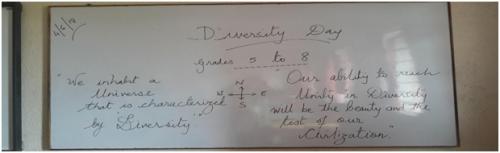 4/6/18
Diversity Day
Grades 5 to 8
"We inhabit a
Universe
that is characterized
by Diversity"
N
W E
S
"Our ability to reach
Unity in Diversity
will be the beauty and the
test of our
Civilization"